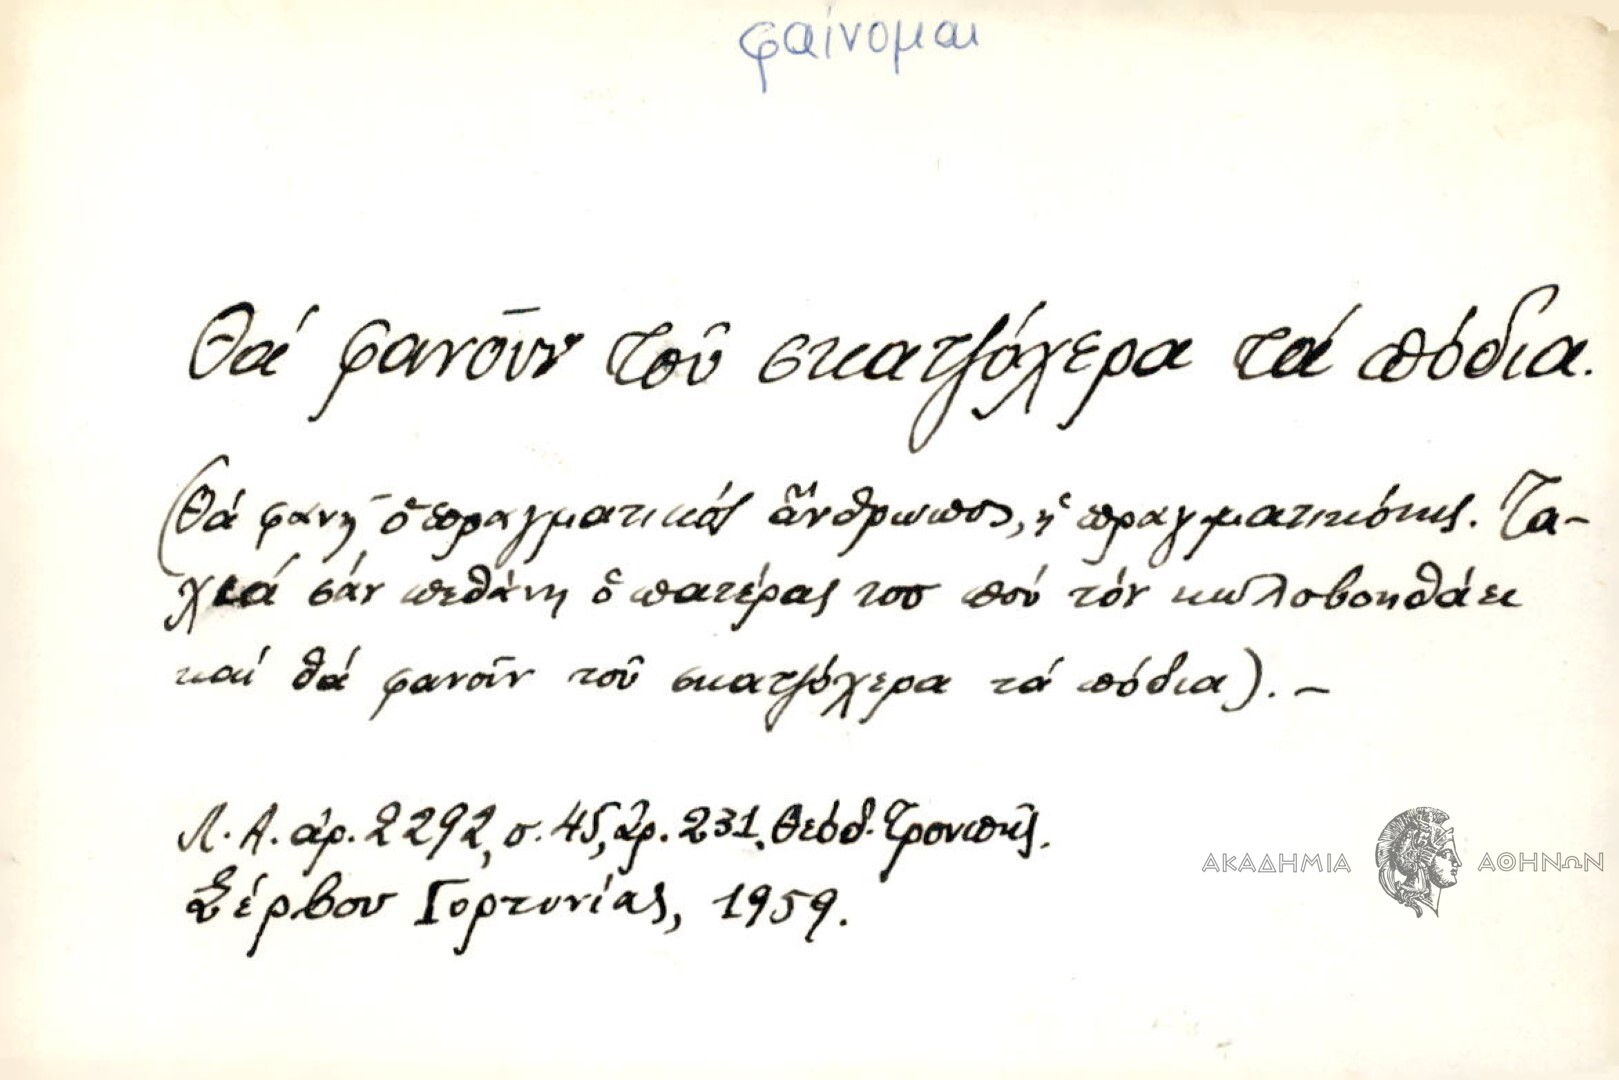 φαίνομαι
Θά φανοῦν τοῦ σκατζόχερα τά πόδια.
(Θά φανῆ ὁ πραγματικός ἄνθρωπος, ἡ πραγματικότης. Τα-
χιά σάν πεθάνη ὁ πατέρας του πού τόν κωλοβοηθάει
καί θά φανοῦν τοῦ σκατζόχερα τά πόδια). –
Λ. Α. ἀρ. 2292, σ. 45, ἀρ. 231. Θεόδ.
Σέρβου Γορτυνίας, 1959.
ΑΚΑΔΗΜΙΑ ΑΘΗΝΩΝ